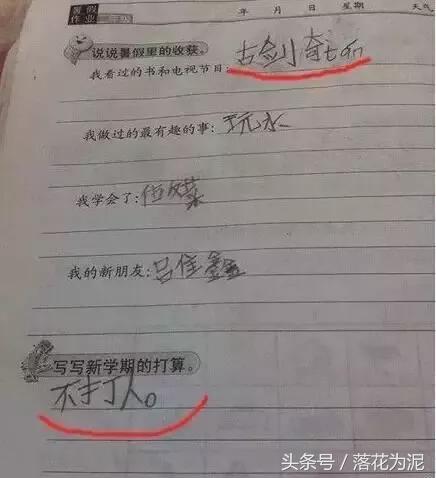 暑假
作业 二年级
年 月 日 星期 天气
说说暑假里的收获。
我看过的书和电视节目：古剑奇
我做过的最有趣的事：玩水
我学会了：做菜
我的新朋友：吕佳鑫
写写新学期的打算。
不打人。
头条号／落花为泥